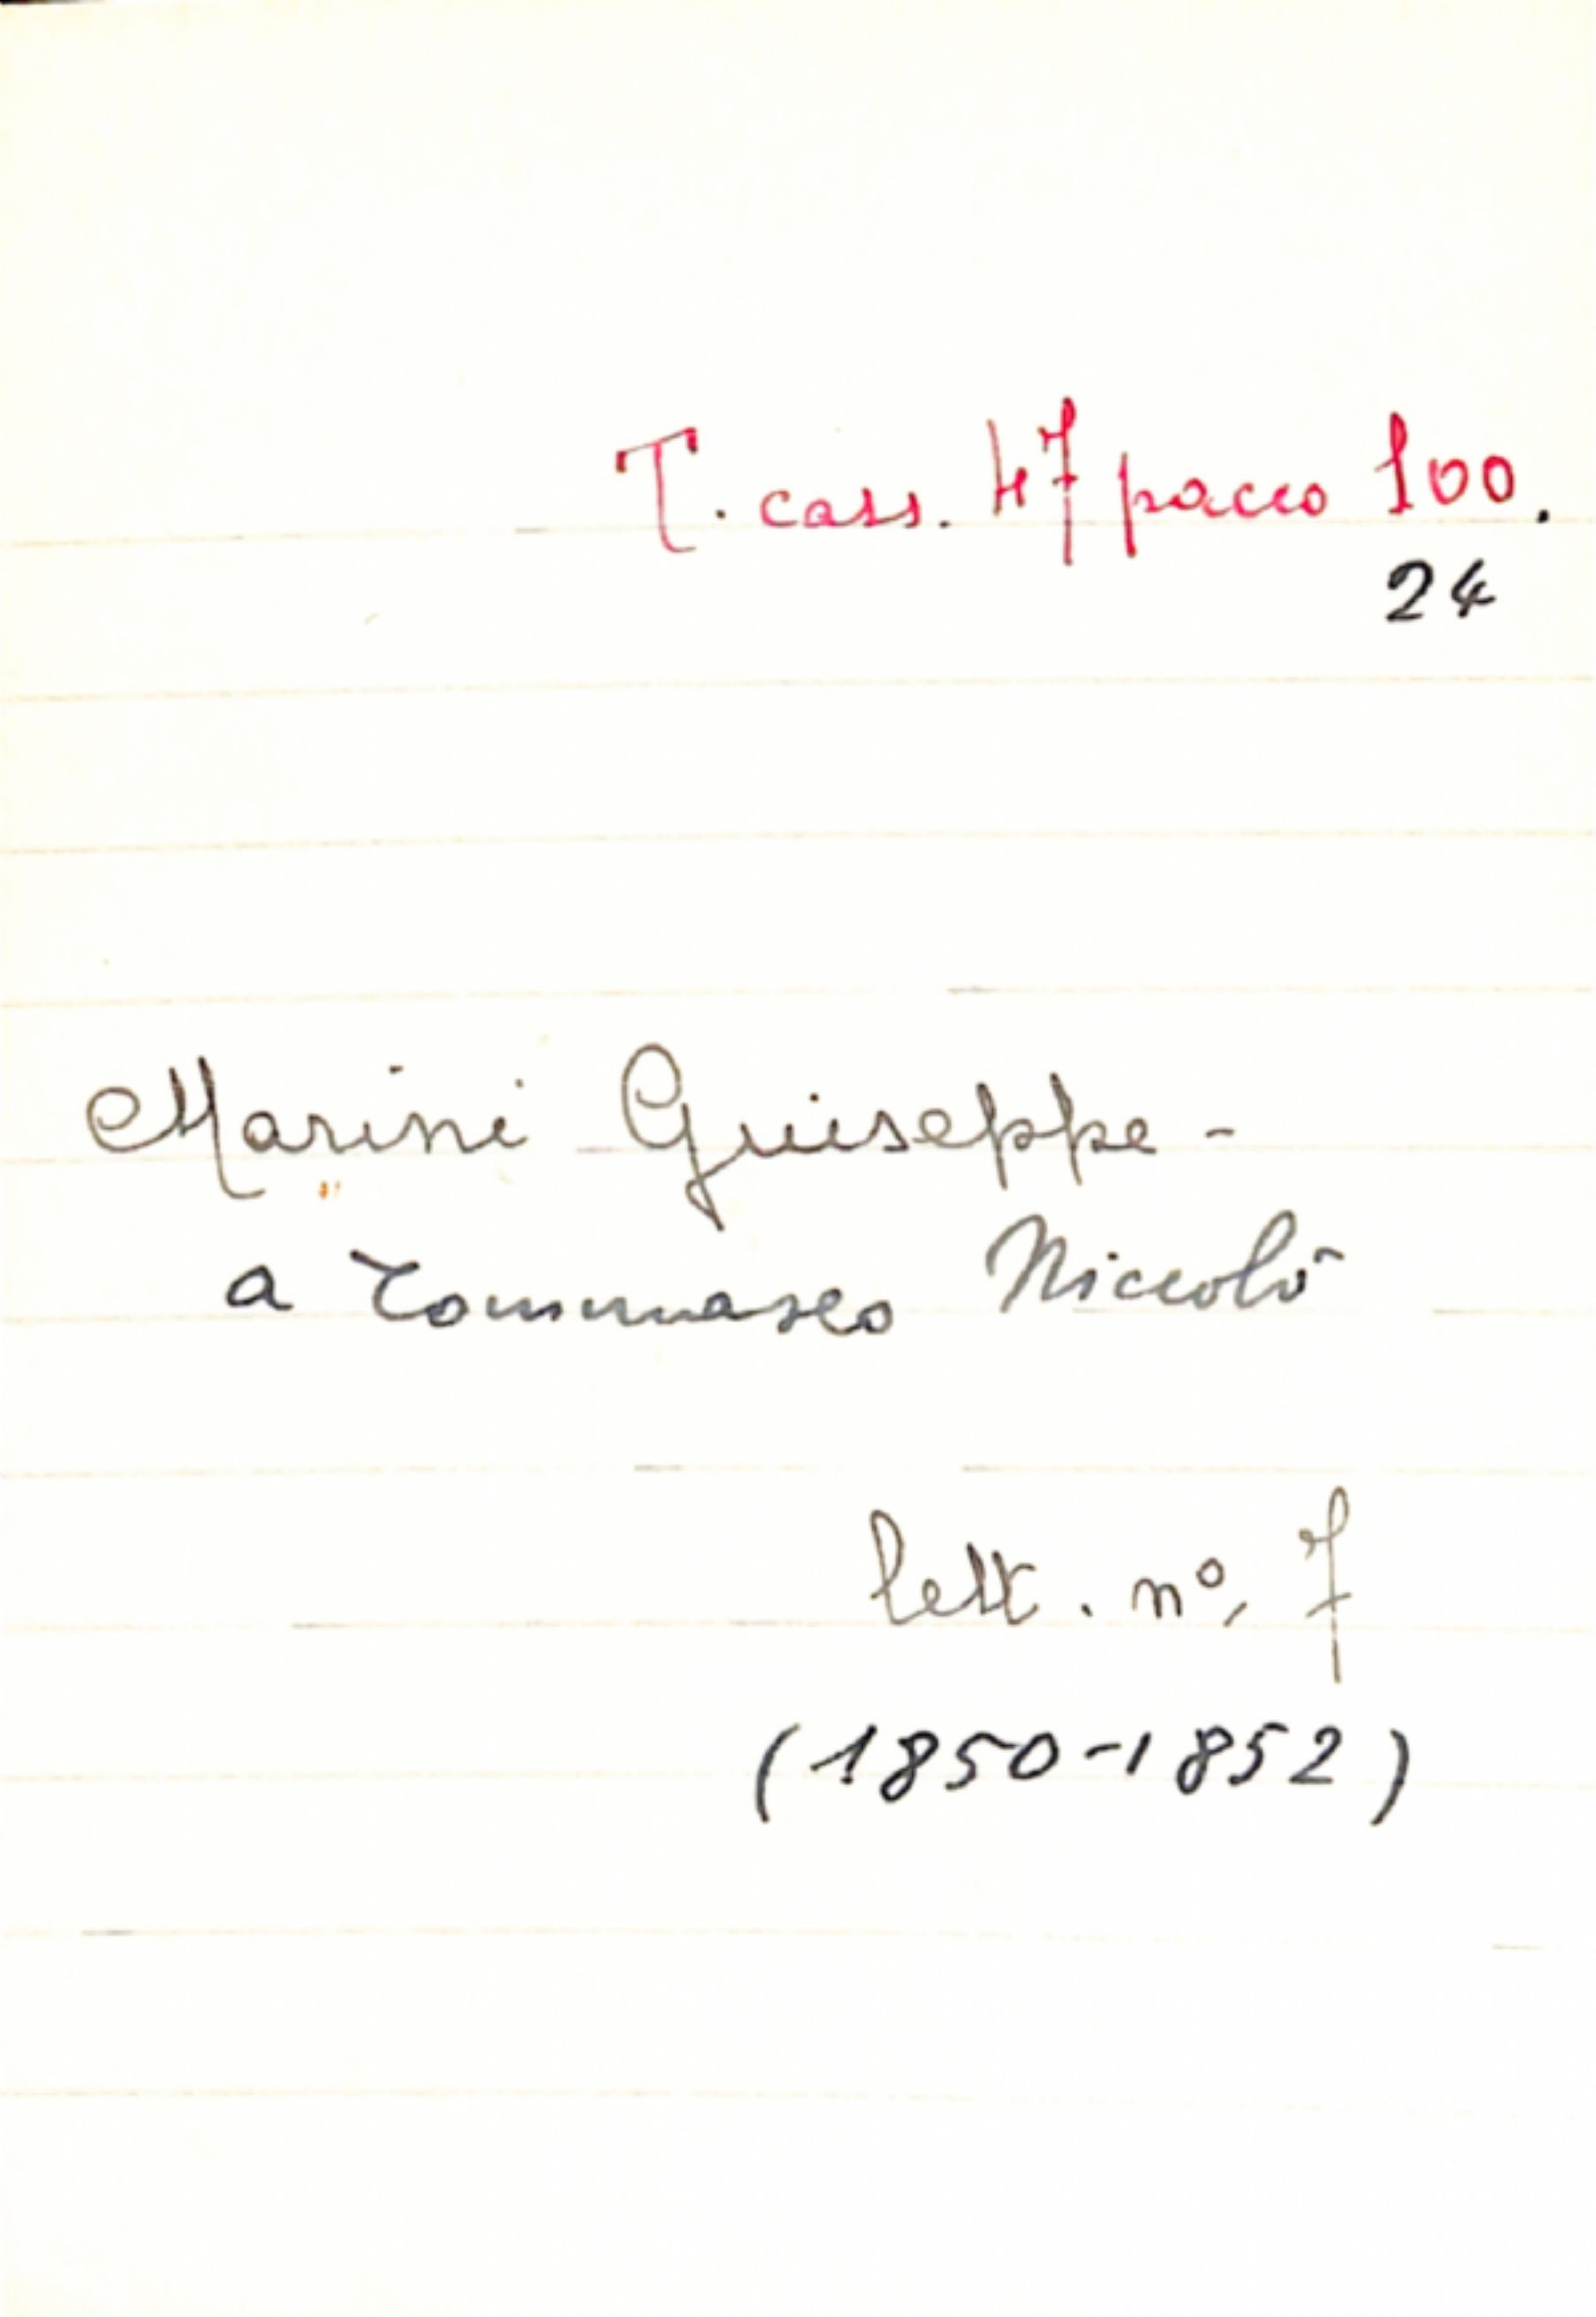 T. cass. 47 pacco 100.
24
Marini Giuseppe -
a Tommaseo Niccolò
lett. nº, 7
(1850-1852)